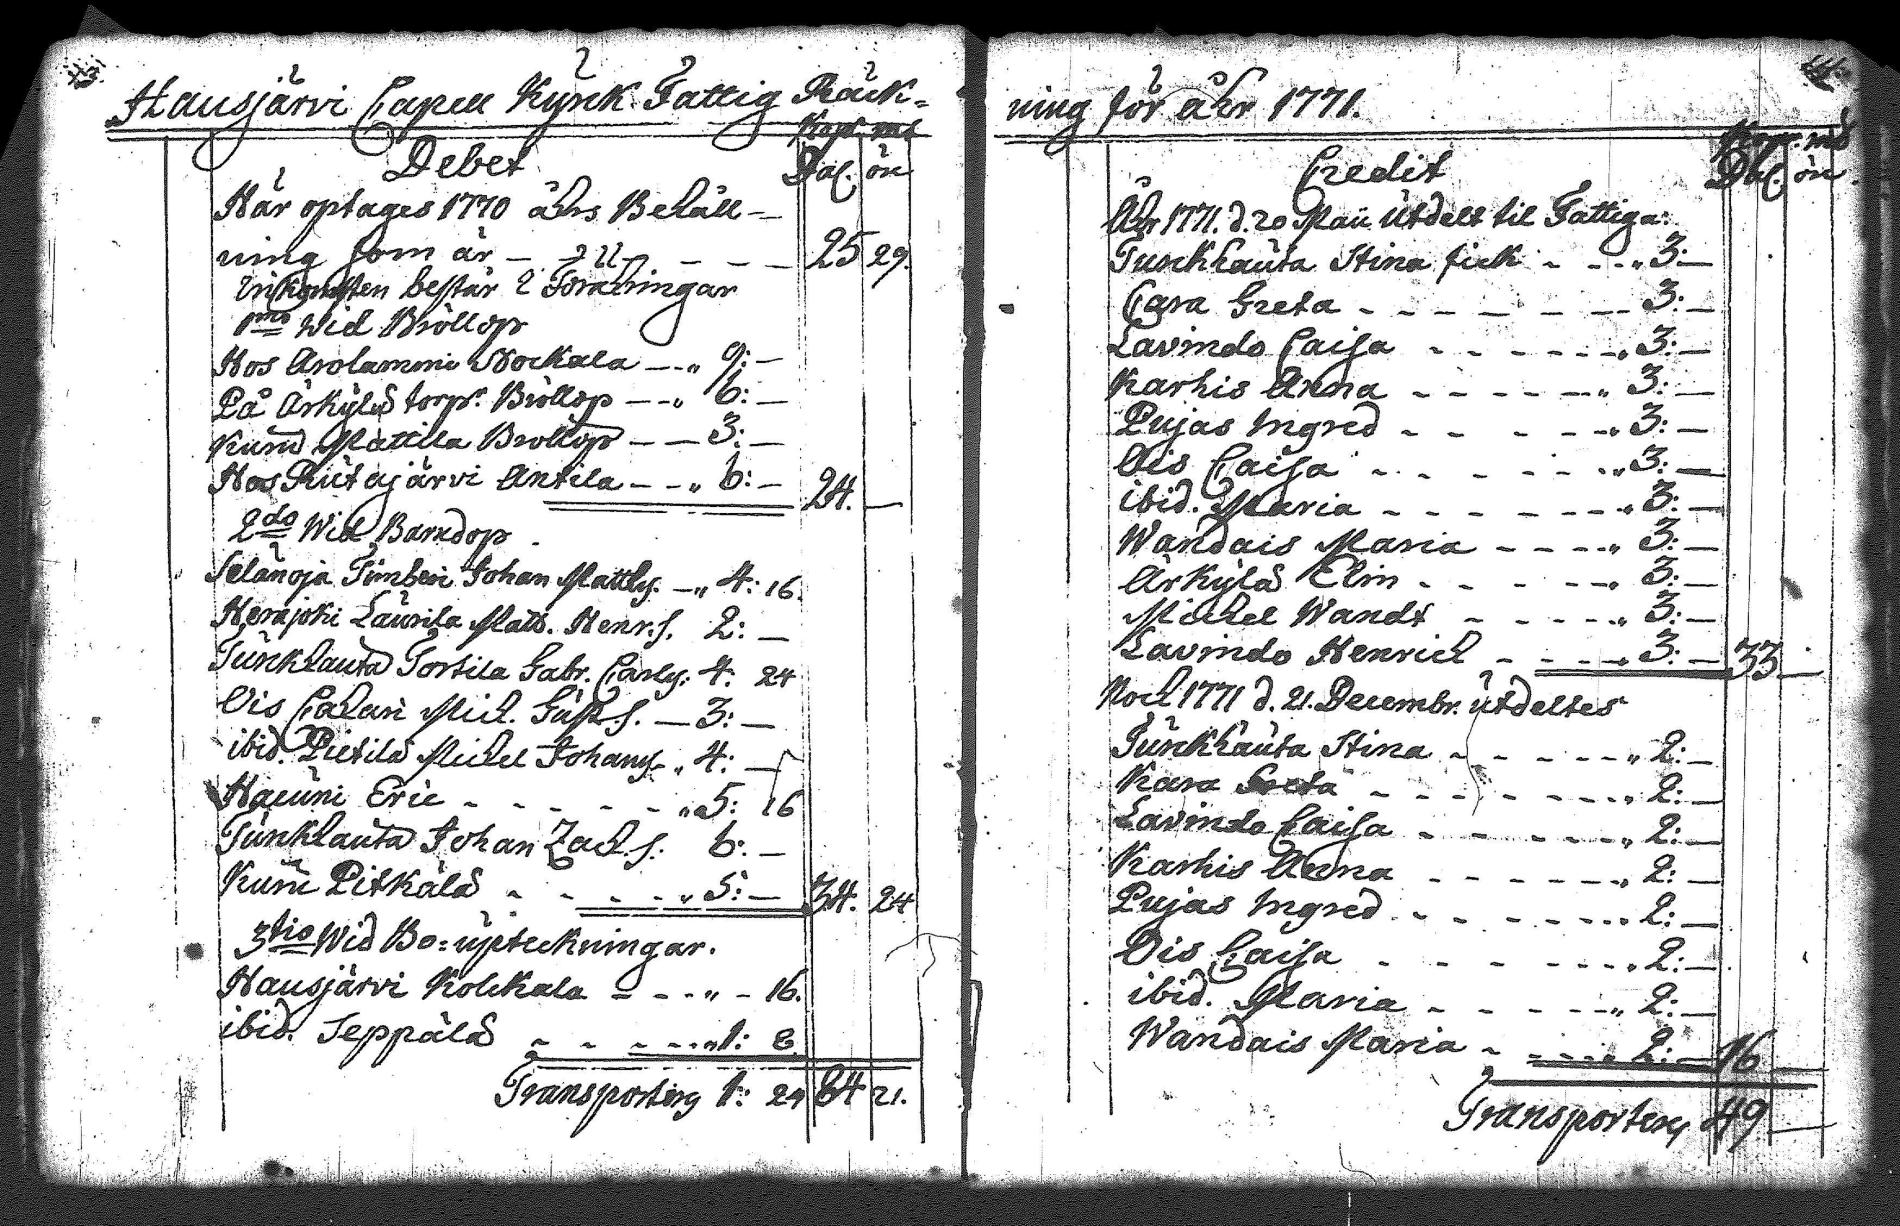 113.
Hausjärvi Capell Kyrk Fattig Räck-
Kopp. mt
Debet
Dal. ör
Här optages 1770 åhrs Behåll-
ning som är — — — — 25 29.
Inkomsten består i Föräringar
1mo Wid Bröllop
Hos Arolammi Kockala — „ 9: —
På Årkylä torp. Bröllop — „ 6: —
Kuru Mattila Bröllop — — 3: —
Hos Riutajärvi Antila — — „ 6: — 24. —
2do Wid Barndop
Selänoja Timberi Johan Matths. — „ 4: 16.
Herajoki Laurila Matts. Henr.s. 2: —
Turkhauta Tortila Gabr. Carls: 4: 24
Ois Michel Gust.s. — 3: —
ibid. Pietilä Michel Johans. „ 4: —
Hacuni Eric - - - - - „ 5: 16
Turkhauta Johan Zach.s. 6: —
Kuru Pitkälä - - - - „ 5: — 34. 24
3tio Wid Bo=upteckningar.
Hausjärvi Kolckala - - - „ - 16.
ibid. Seppälä - - - - - „ 1: 8
Transporterg 1: 24 84 21.
114.
ning för åhr 1771.
Kopp. mt
Credit
Dal. ör
Åhr 1771. d. 20 Maii utdelt til Fattiga:
Turckhauta Stina fick - - - „ 3: —
Cara Greta - - - - - - 3: —
Lavindo Caisa - - - - - - „ 3: —
Karhis Anna - - - - - - „ 3: —
Pujas Ingred - - - - - „ 3: —
Ois Caisa - - - - - - „ 3: —
ibid. Maria - - - - - - „ 3: —
Wandais Maria - - - - „ 3: —
Årkylä Elin - - - - - „ 3: —
Michel Wandt - - - - - „ 3: —
Lavindo Henrich - - - - „ 3: — 33 —
Noch 1771 d. 21. Decembr. utdeltes
Turkhauta Stina - - - - - „ 2: —
Kara Greta - - - - - - - „ 2: —
Lavindo Caisa - - - - - - „ 2: —
Karhis Anna - - - - - - „ 2: —
Pujas Ingred - - - - - - - 2: —
Ois Caisa - - - - - - - „ 2: —
ibid. Maria - - - - - - „ 2: —
Wandais Maria - - - - - - 2: — 16 —
Transporterg 49 —